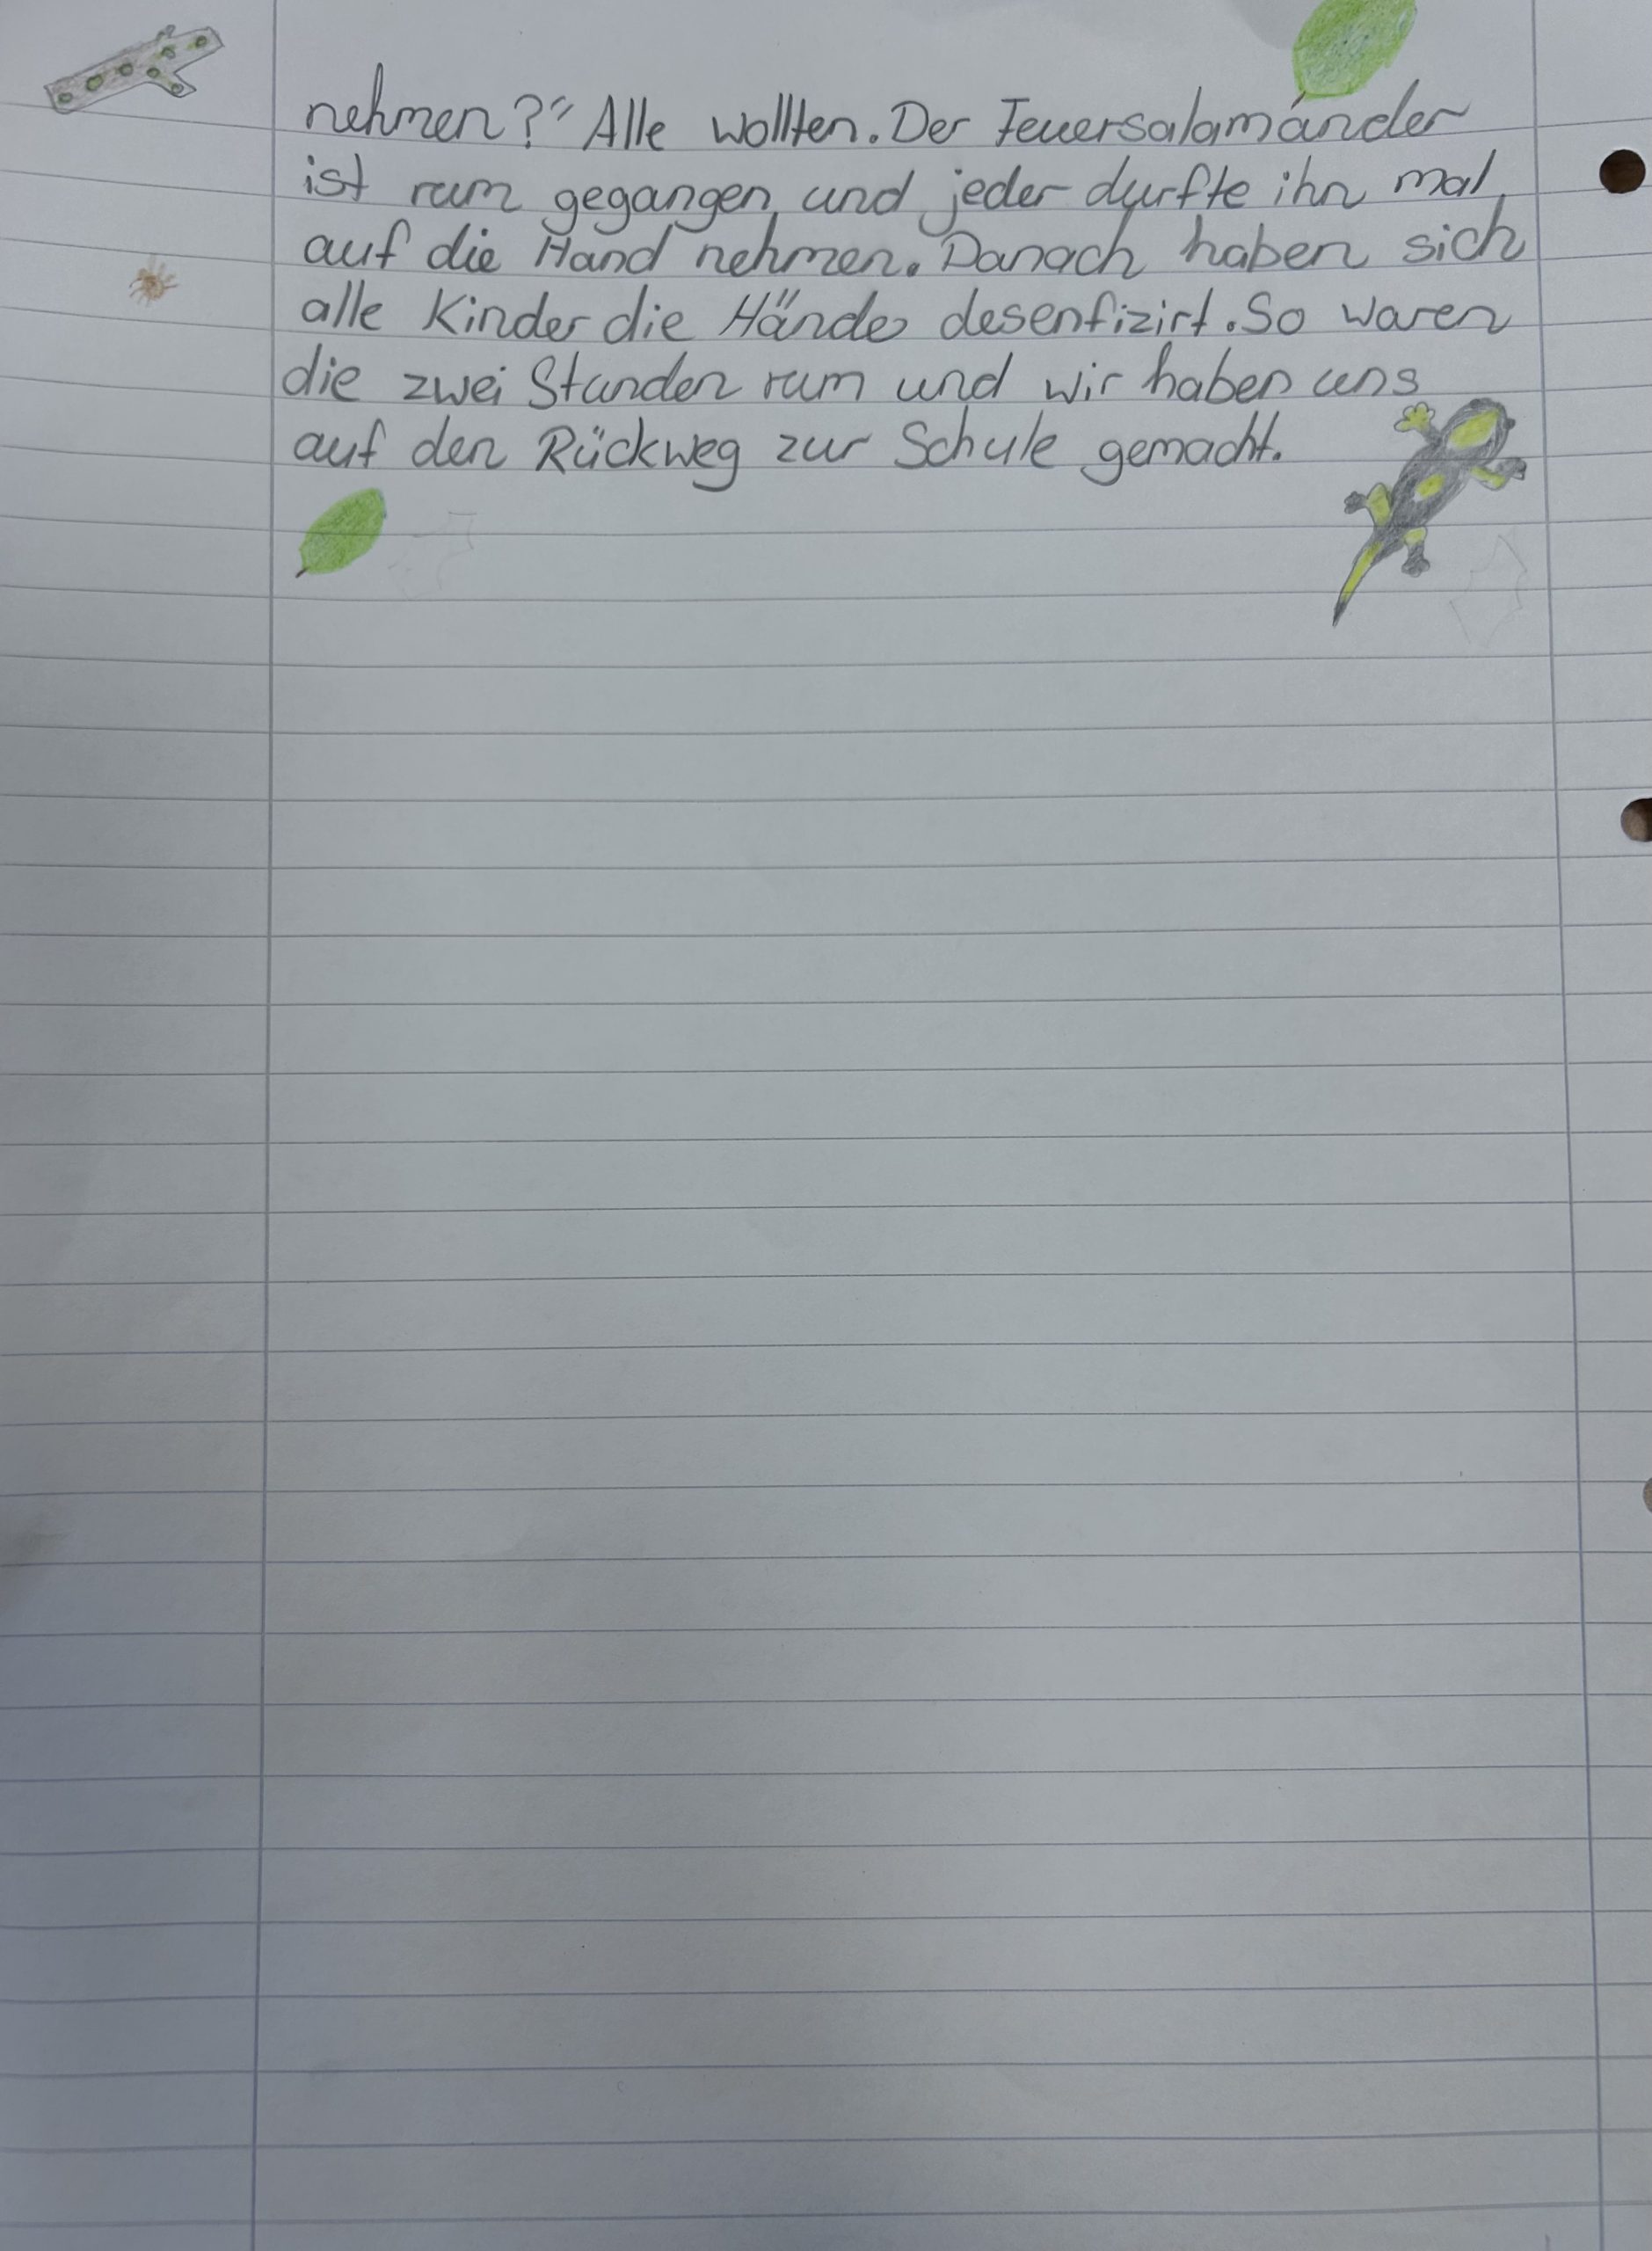 nehmen?“ Alle wollten. Der Feuersalamander
ist rum gegangen und jeder durfte ihn mal
auf die Hand nehmen. Danach haben sich
alle Kinder die Hände desenfizirt. So waren
die zwei Stunden rum und wir haben uns
auf den Rückweg zur Schule gemacht.